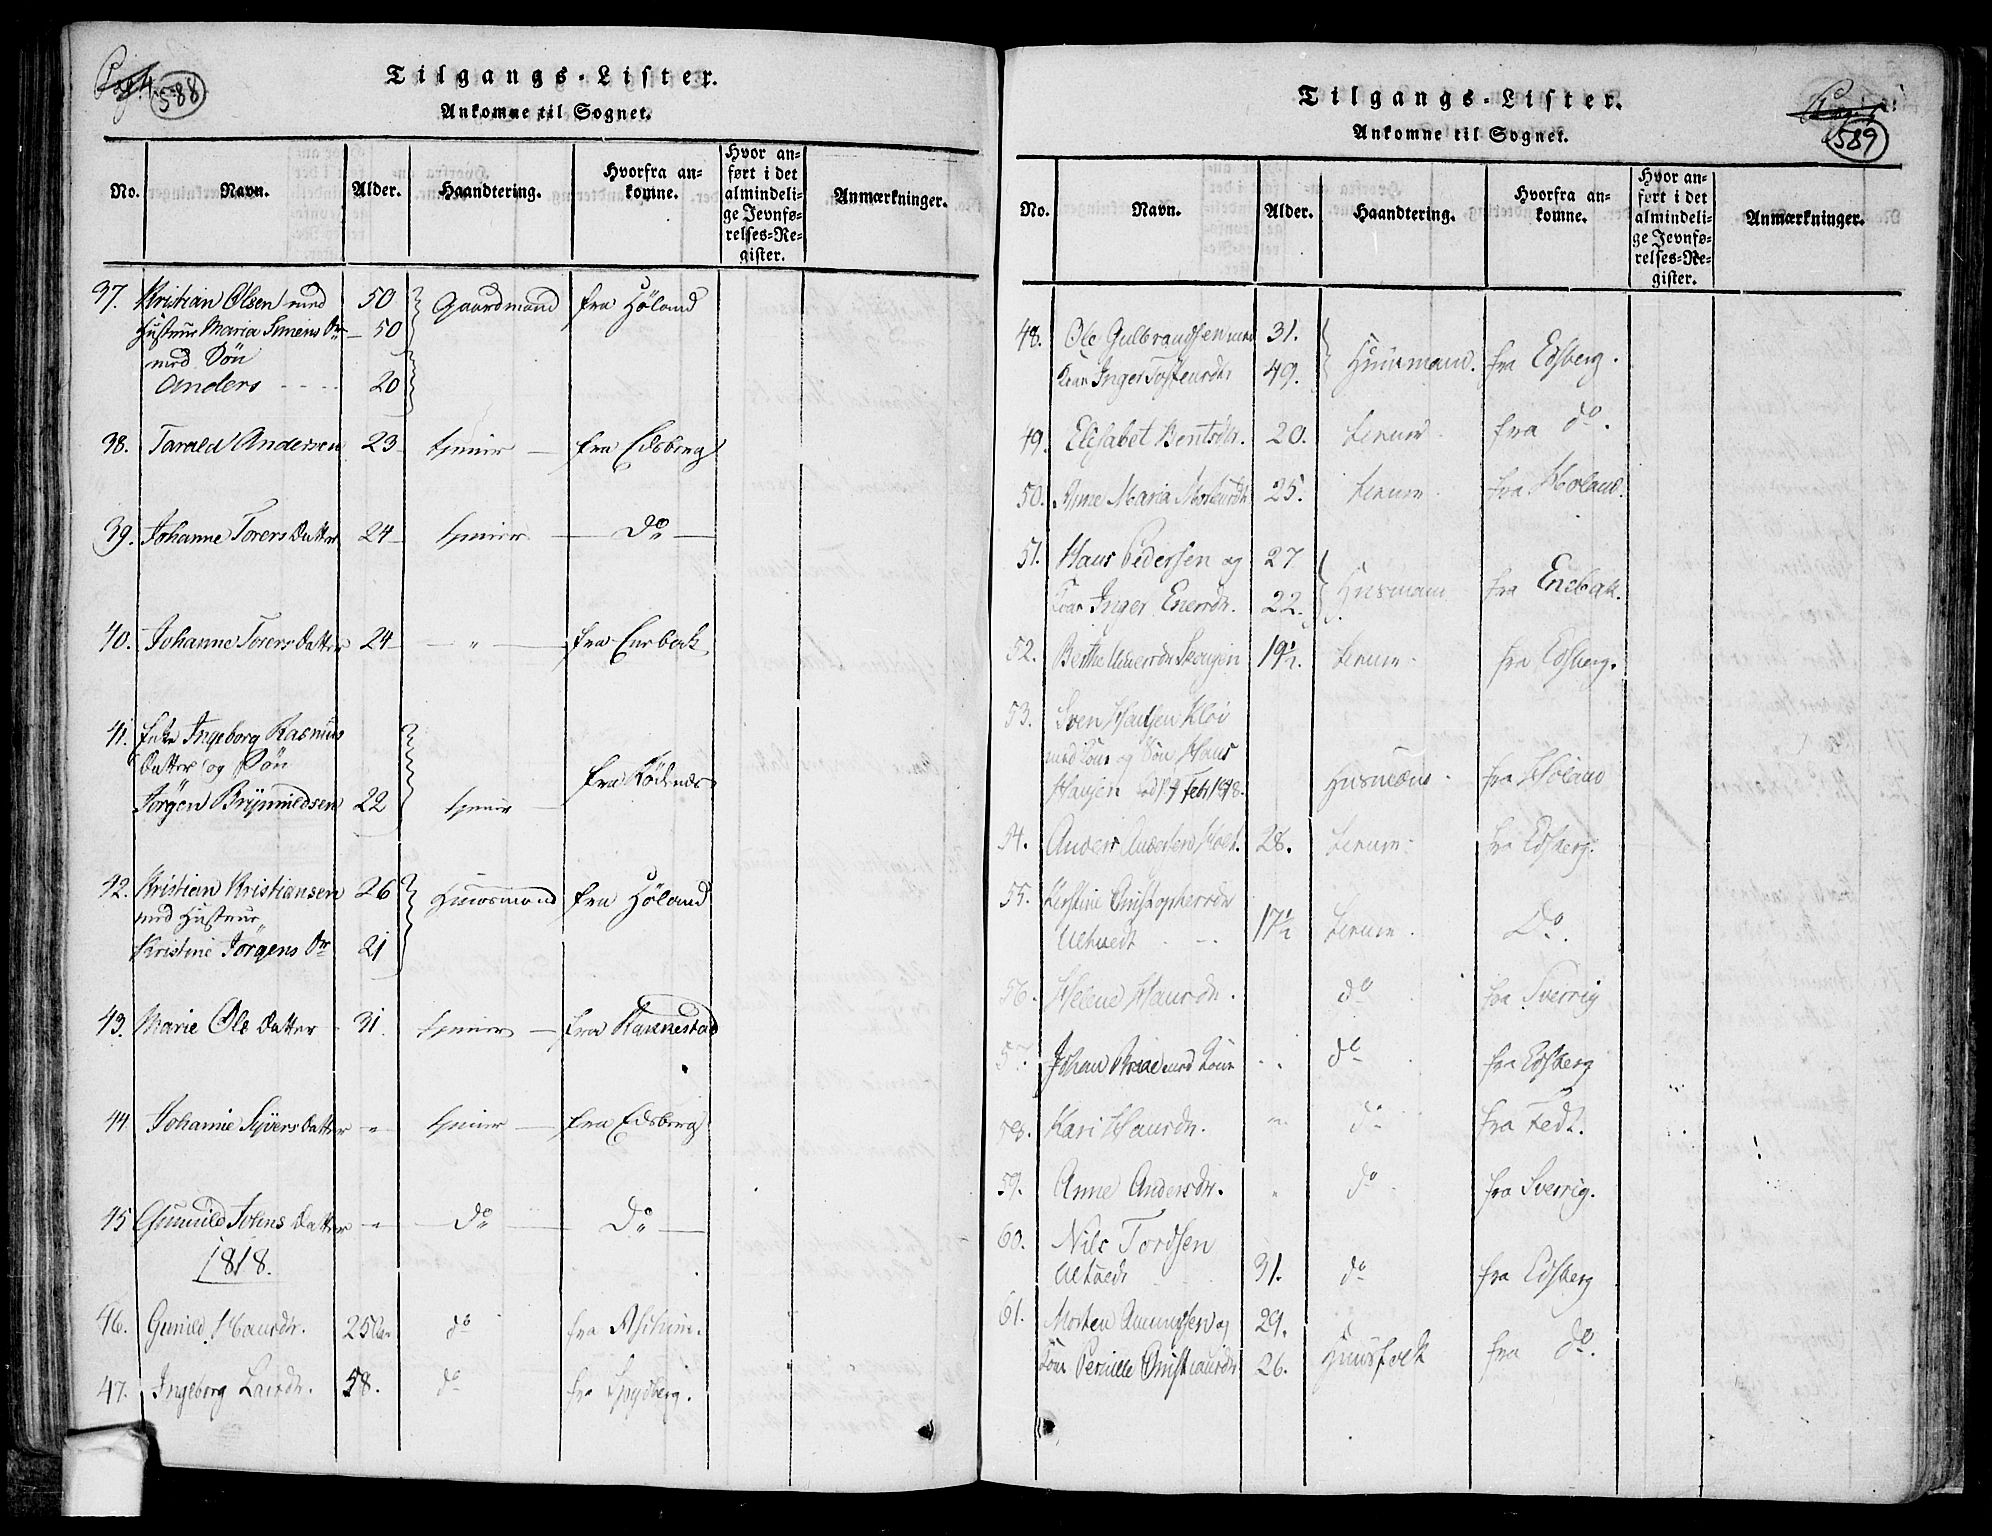 588
Tilgangs-Lister.
Ankomne til Sognet.
No. Navn. Alder. Haandtering. Hvorfra ankomne. Hvor anført i det almindelige Jevnførelses-Register. Anmærkninger.
37. Kristian Olsen med 50 Gaardmand fra Höland
Hustrue Maria Simens Dr 50
med Sön
Anders 20
38. Tarald Andersen 23 tjener fra Edsberg
39. Johanne Torers Datter 24 tjener Do
40. Johanne Torers Datter 24 " fra Enebak
41. Enke Ingeborg Rasmus
Datter og Sön fra Rödenæs
Jörgen Brynnildsen 22 tjener
42. Kristian Kristiansen 26 Huusmand fra Höland
med Hustrue
Kristine Jörgens Dr 21
43. Marie Ols Datter 31. tjener fra Rakkestad
44 Johanne Syvers Datter " tjener fra Edsberg
45 Gunnild Johns Datter " Do Do
1818.
46. Gunild Hansdr. 25 do fra Aschim.
47. Ingeborg Larsdr. 58. do fra Spydberg.
589
Tilgangs-Lister.
Ankomne til Sognet.
No. Navn. Alder. Haandtering. Hvorfra ankomne. Hvor anført i det almindelige Jevnførelses-Register. Anmærkninger.
48. Ole Gulbrandsen med 31. Huusmand. fra Edsberg.
Kone Inger Tostensdr 49.
49. Elisabet Bentsdr. 20. tienner fra do.
50. Anne Maria 25. tienner fra Höland.
51. Hans Pedersen og 27 Husmann fra Enebak.
Kone Inger Enersdr. 22.
52. Berthe 19½. tienner fra Edsberg.
53. Sven Hansen Klöi
med Kone og Sön Hans
Hansen 1818. Husmænd fra Höland
54. Anders Andersen Holt. 28. tienner fra Edsberg.
55. Kerstine Christophersdr
Ultvedt 17½ tienner. Do.
56. Helene Hansdr. do fra Sverrig
57. Johan med Kone do fra Edsberg
58. Kari Hansdr. " do fra Fedt.
59. Anne Andersdr. " do fra Sverrig.
60. Nils Tordsen
Ultvedt 31. do fra Edsberg
61. Morten Amundsen og 29. Huusfolk fra do.
Kone Pernille Christiansdr 26.